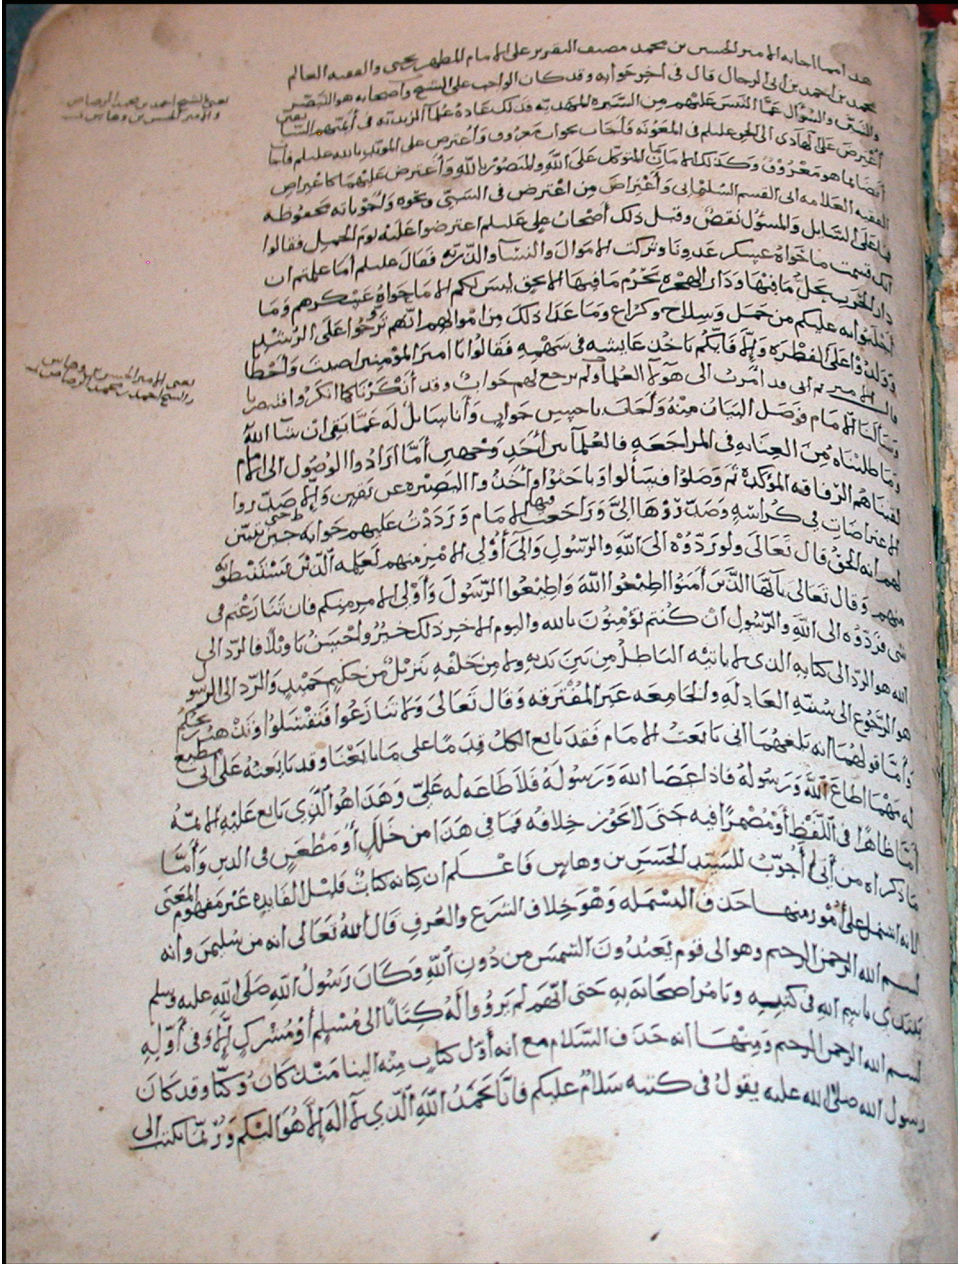 هذا مما اجابه الامير الحسين بن محمد مصنف التقرير على الامام المطهر بن يحيى والفقيه العالم
محمد بن احمد بن ابى الرجال قال فى اخر جوابه وقد كان الواجب على الشيخ واصحابه هو التبصر
والتبين والسؤال عما التبس عليهم من السيره المهديه فذلك عادة علما الزيديه فى أئمتهم السابقين
يعنى الشيخ احمد بن محمد الرصاص
والامير الحسن بن وهاس
أعترض على الهادى الى الحق عليلم فى المعونه فأجاب بجواب معروف وأعترض على المؤيد بالله عليلم فاجاب
أيضا بما هو معروف وكذلك الامامان المتوكل على الله والمنصور بالله وأعترض عليهما كاعتراض
الفقيه العلامه ابى القسم السلمانى وأعتراض من اعترض فى السبى وغيره والجوابات محفوظه
فما على السايل والمسؤل نقص وقبل ذلك أصحاب على عليلم اعترضوا عليه يوم الجمل فقالوا
انك قسمت ما حواه عسكر عدونا وتركت الاموال والنسآ والذريه فقال عليلم اما علمتم ان
دار الحرب يحل ما فيها ودار الهجره يحرم ما فيها الا بحق ليس لكم الا ما حواه عسكرهم وما
أجلبوا به عليكم من حمل وسلاح وكراع وما عدا ذلك من اموالهم انهم نرحوا على الرشد
وولدوا على الفطره والا فايكم ياخذ عايشه فى سهمه فقالوا يا امير المؤمنين اصبت واخطانا
يعنى الامير الحسن بن وهاس
والشيخ احمد بن محمد الرصاص
قال الامير ثم انى قد امرت الى هولآ العلمآ ولم يرجع لهم جواب وقد أنكرنا كما انكروا فتبصرنا
وسألنا الامام فوصل البيان منه وأجاب باحسن جواب وأنا سايل له عما بقى ان شآ الله
وما طلبناه من العنايه فى المراجعه فالعلمآ بين احد وجهين أما ارادوا الوصول الى الامام
لقيناهم الرفاقه المؤكده ثم وصلوا فسألوا وباحثوا وأخذوا البصيره عن يقين والا صدروا
الاعتراضات فى كراسه وصدروها الى وراجعت فيها الامام ورددت عليهم جوابه حتى يتبين
لهم انه الحق قال تعالى ولو ردوه الى الله والرسول والى أولى الامر منهم لعلمه الذين يستنبطونه
منهم وقال تعالى يايها الذين امنوا اطيعوا الله واطيعوا الرسول وأولى الامر منكم فان تنازعتم فى
شى فردوه الى الله والرسول ان كنتم تؤمنون بالله واليوم الاخر ذلك خير واحسن تاويلا فالرد الى
الله هو الرد الى كتابه الذى لا ياتيه الباطل من بين يديه ولا من خلفه تنزيل من حكيم حميد والرد الى الرسول
هو الرجوع الى سنته العادله والجامعه غير المفترقه وقال تعالى ولا تنازعوا فتفشلوا وتذهب ريحكم
وأما قولهما انه بلغهما انى بايعت الامام فقد بايع الكل قدما على ما بايعنا وقد بايعته على انى مطيع
له مهما اطاع الله ورسوله فاذا عصا الله ورسوله فلا طاعه له على وهذا هو الذى بايع عليه الائمه
أما ظاهرا فى اللفظ أو مضمرا فيه حتى لا يجوز خلافه فما فى هذا من خلل أو مطعن فى الدين وأما
ما ذكراه من أنى لم أجوب للسيد الحسن بن وهاس فاعلم ان كتابه كتاب قليل الفايده غير مفهوم المعنى
لانه اشتمل على أمور منها حذف البسمله وهو خلاف الشرع والعرف قال الله تعالى انه من سليمن وأنه
بسم الله الرحمن الرحيم وهو الى قوم يعبدون الشمس من دون الله وكان رسول الله صلى الله عليه وسلم
يبتدى باسم الله فى كتبه ويامر اصحابه به حتى انهم لم يرووا له كتابا الى مسلم أو مشرك الا وفى أوله
بسم الله الرحمن الرحيم ومنها انه حذف السلام مع انه أول كتاب منه الينا منذ كان وكنا وقد كان
رسول الله صلى الله عليه يقول فى كتبه سلام عليكم فانا نحمد الله الذي لا اله الا هو اليكم وربما كتب الى